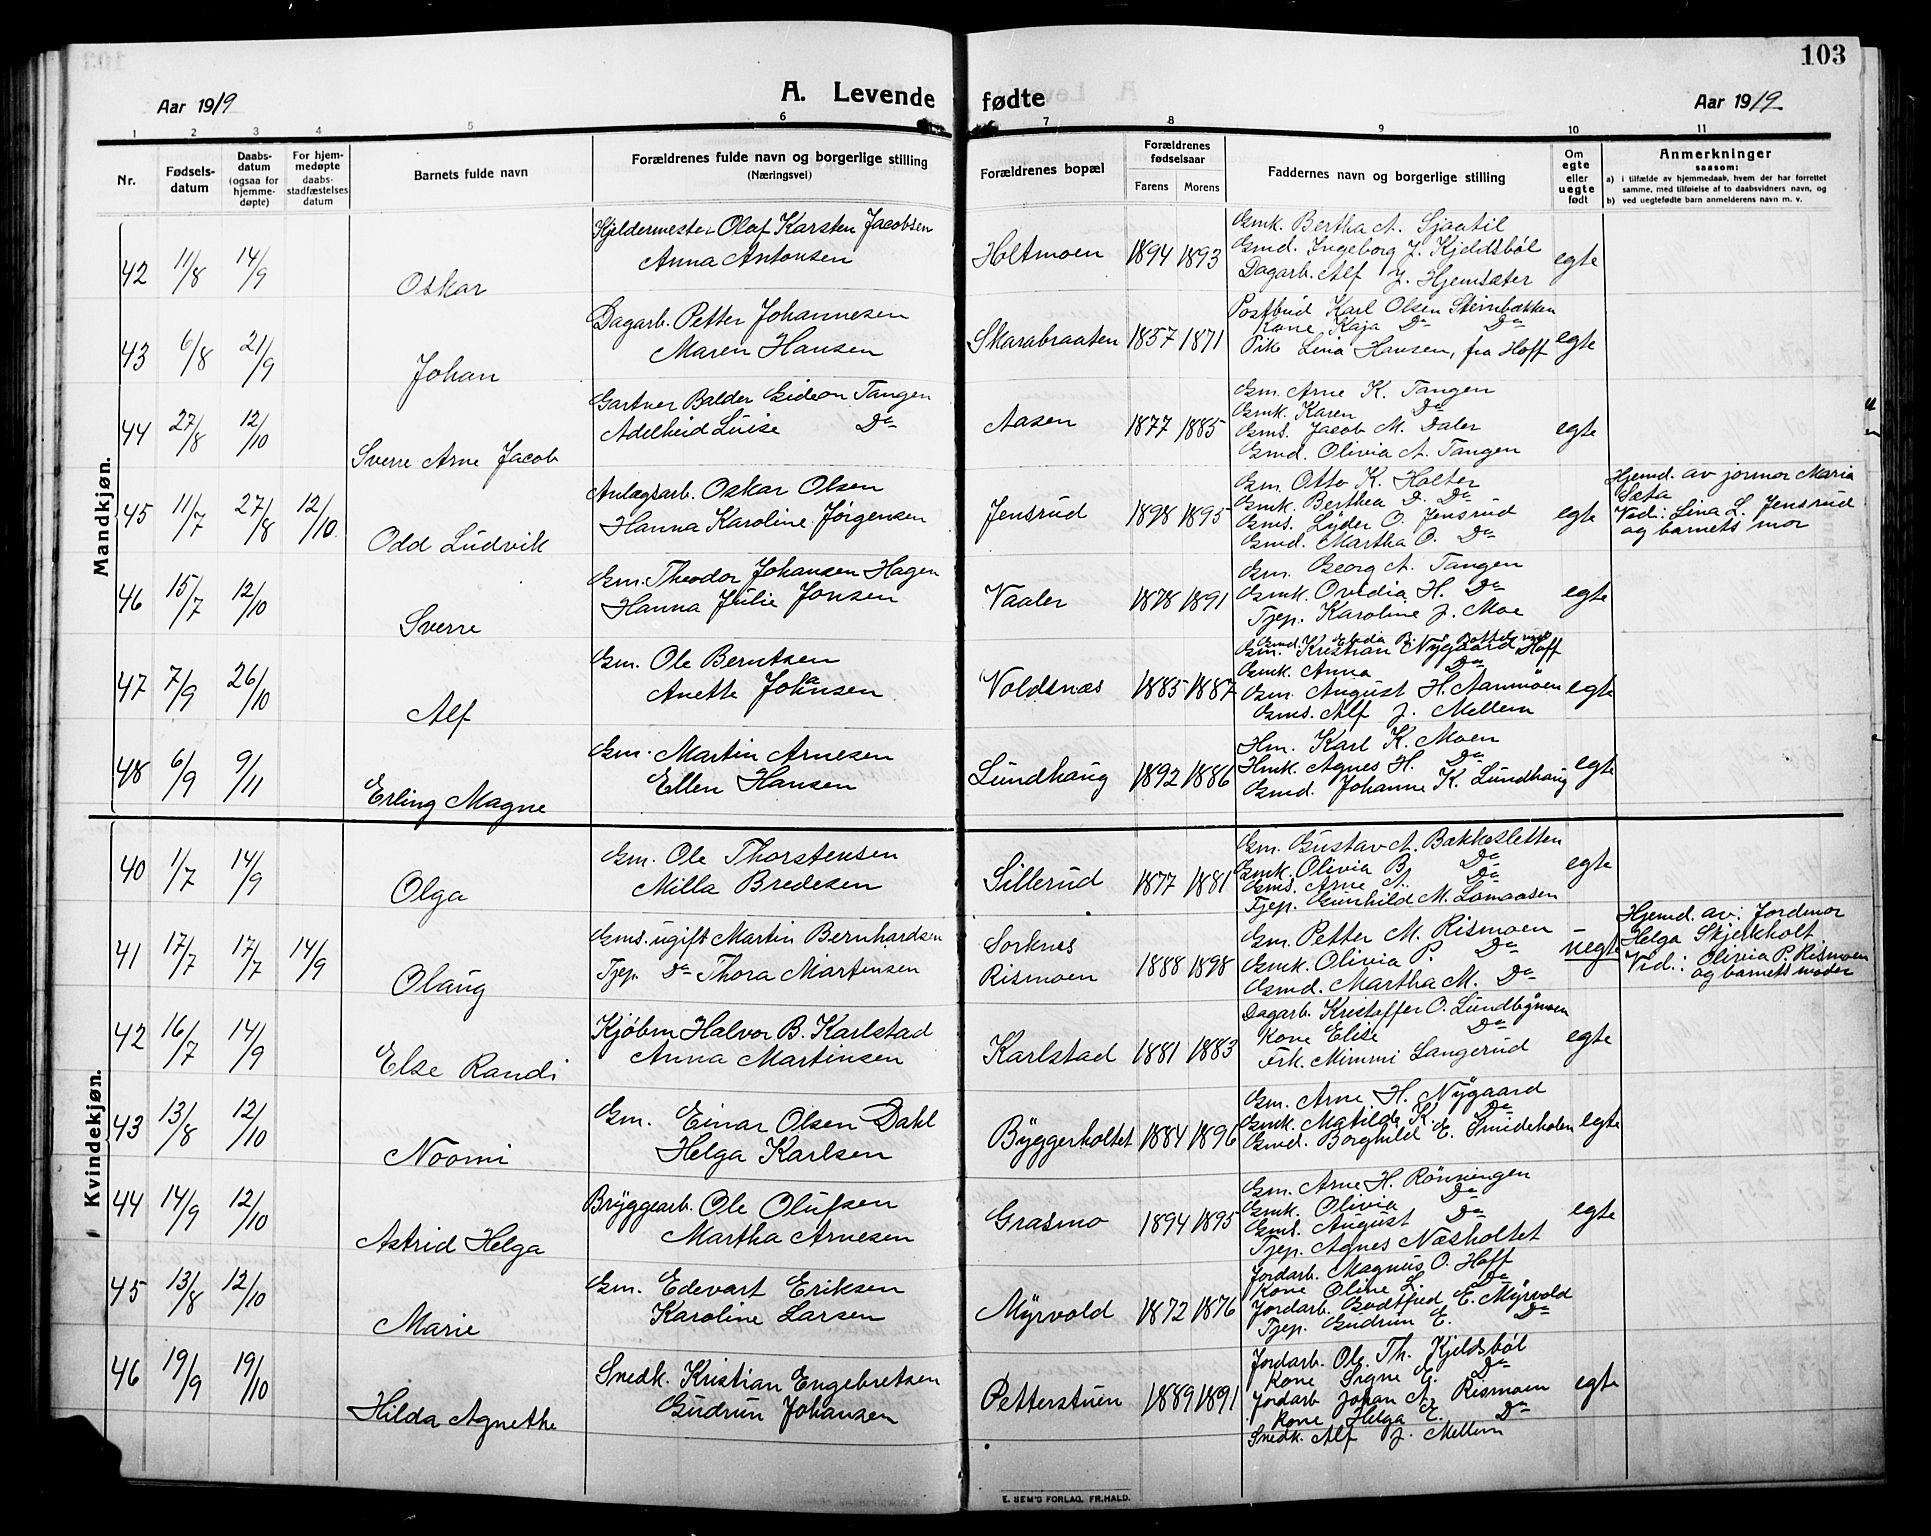 103
Aar 1919
A. Levende fødte
Aar 1919
1 2 3 4 5 6 7 8 9 10 11
Nr.
Fødsels-
datum
Daabs-
datum
(ogsaa for
hjemme-
døpte)
For hjem-
medøpte
daabs-
stadfæstelses
datum
Barnets fulde navn
Forældrenes fulde navn og borgerlige stilling
(Næringsvei)
Forældrenes bopæl
Forældrenes
fødselsaar
Farens Morens
Faddernes navn og borgerlige stilling
Om
egte
eller
uegte
født
Anmerkninger
saasom:
a) i tilfælde av hjemmedaab, hvem der har forrettet
samme, med tilføielse af to daabsvidners navn, og
b) ved uegtefødte barn anmelderens navn m. v.
Mandkjøn.
42 11/8 14/9 Oskar
Kjeldermester Olaf Karsten Jacobsen
Anna Antonsen
Holtmoen 1894 1893
Gmk. Bertha A. Sjaatil
Gmd. Ingeborg J. Kjeldsbøl
Dagarb. Alf J. Hjemsæter
egte
43 6/8 21/9 Johan
Dagarb. Petter Johannesen
Maren Hansen
Skarabraaten 1857 1871
Postbud Karl Olsen Steinbækken
Kone Kaja Do Do
Pike Lina Hansen, fra Hoff
egte
44 27/8 12/10 Sverre Arne Jacob
Gartner Balder Gideon Tangen
Adelheid Luise Do
Aasen 1877 1885
Gm. Arne K. Tangen
Gmk. Karen Do
Gms. Jacob M. Daler
Gmd. Olivia A. Tangen
egte
45 11/7 27/8 12/10 Odd Ludvik
Anlægsarb. Oskar Olsen
Hanna Karoline Jørgensen
Jensrud 1898 1895
Gm. Otto K. Holter
Gmk. Berthea D. Do
Gms. Lyder O. Jensrud
Gmd. Martha O. Do
egte
Hjemd. av jormor Maria
Seta
Vid: Lina L. Jensrud
og barnets mor
46 15/7 12/10 Sverre
Gm. Theodor Johansen Hagen
Hanna Julie Jonsen
Vaaler 1878 1891
Gm. Georg A. Tangen
Gmk. Ovidia H. Do
Tjep. Karoline J. Moe
egte
47 7/9 26/10 Alf
Gm. Ole Berntsen
Anette Johansen
Voldsnæs 1885 1887
Gm. Kristian Nygaard Hoff
Gmk. Anna Do
Gm August H. Aanmoen
Gms. Alf J. Mellem
egte
48 6/9 9/11 Erling Magne
Gm. Martin Arnesen
Ellen Hansen
Lundhaug 1892 1886
Hm. Karl K. Moen
Hmk. Agnes H. Do
Gmd. Johanne K. Lundhaug
egte
Kvindekjøn.
40 1/7 14/9 Olga
Gm. Ole Thorstensen
Milla Bredesen
Sillerud 1877 1881
Gm. Gustav A. Bakkesletten
Gmk. Olivia B. Do
Gms. Arne A. Do
Tjep. Gunhild M. Lomaasen
egte
41 17/7 17/7 14/9 Olaug
Gms. ugift Martin Bernhardsen
Tjep. Do Thora Martinsen
Sorknes
Rismoen 1888 1898
Gm. Petter M. Rismoen
Gmk. Olivia P. Do
Gmd. Martha M. Do
uegte
Hjemd. av: Jordmor
Helga Skjerkholt
Vid.: Olivia P. Rismoen
og barnets moder
42 16/7 14/9 Else Randi
Kjøbm Halvor B. Karlstad
Anna Martinsen
Karlstad 1881 1883
Dagarb. Kristoffer O. Lundbymoen
Kone Elise Do
Frk. Mimmi Langerud
egte
43 13/8 12/10 Noomi
Gm. Einar Olsen Dahl
Helga Karlsen
Byggerholtet 1884 1896
Gm. Arne H. Nygaard
Gmk. Matilda K. Do
Gmd. Borghild E. Smideholen
egte
44 14/9 12/10 Astrid Helga
Bryggearb. Ole Olufsen
Martha Arnesen
Grasmo 1894 1895
Gm. Arne H. Rønningen
Gmk. Olivia Do
Gms. August Do
Tjep. Agnes Næsholtet
egte
45 13/8 12/10 Marie
Gm. Edevart Eriksen
Karoline Larsen
Myrvold 1872 1876
Jordarb. Magnus O. Hoff
Kone Oline L. Do
Jordarb. Godtfred E. Myrvold
Tjep. Gudrun E. Do
46 19/9 19/10 Hilda Agnethe
Snedk. Kristian Engebretsen
Gudrun Johansen
Petterstuen 1889 1891
Jordarb. Ole Th. Kjeldsbøl
Kone Signe E. Do
Jordarb Johan A. Rismoen
Kone Helga E. Do
Snedk. Alf J. Mellem
egte
E. SEM'S FORLAG, FR.HALD.